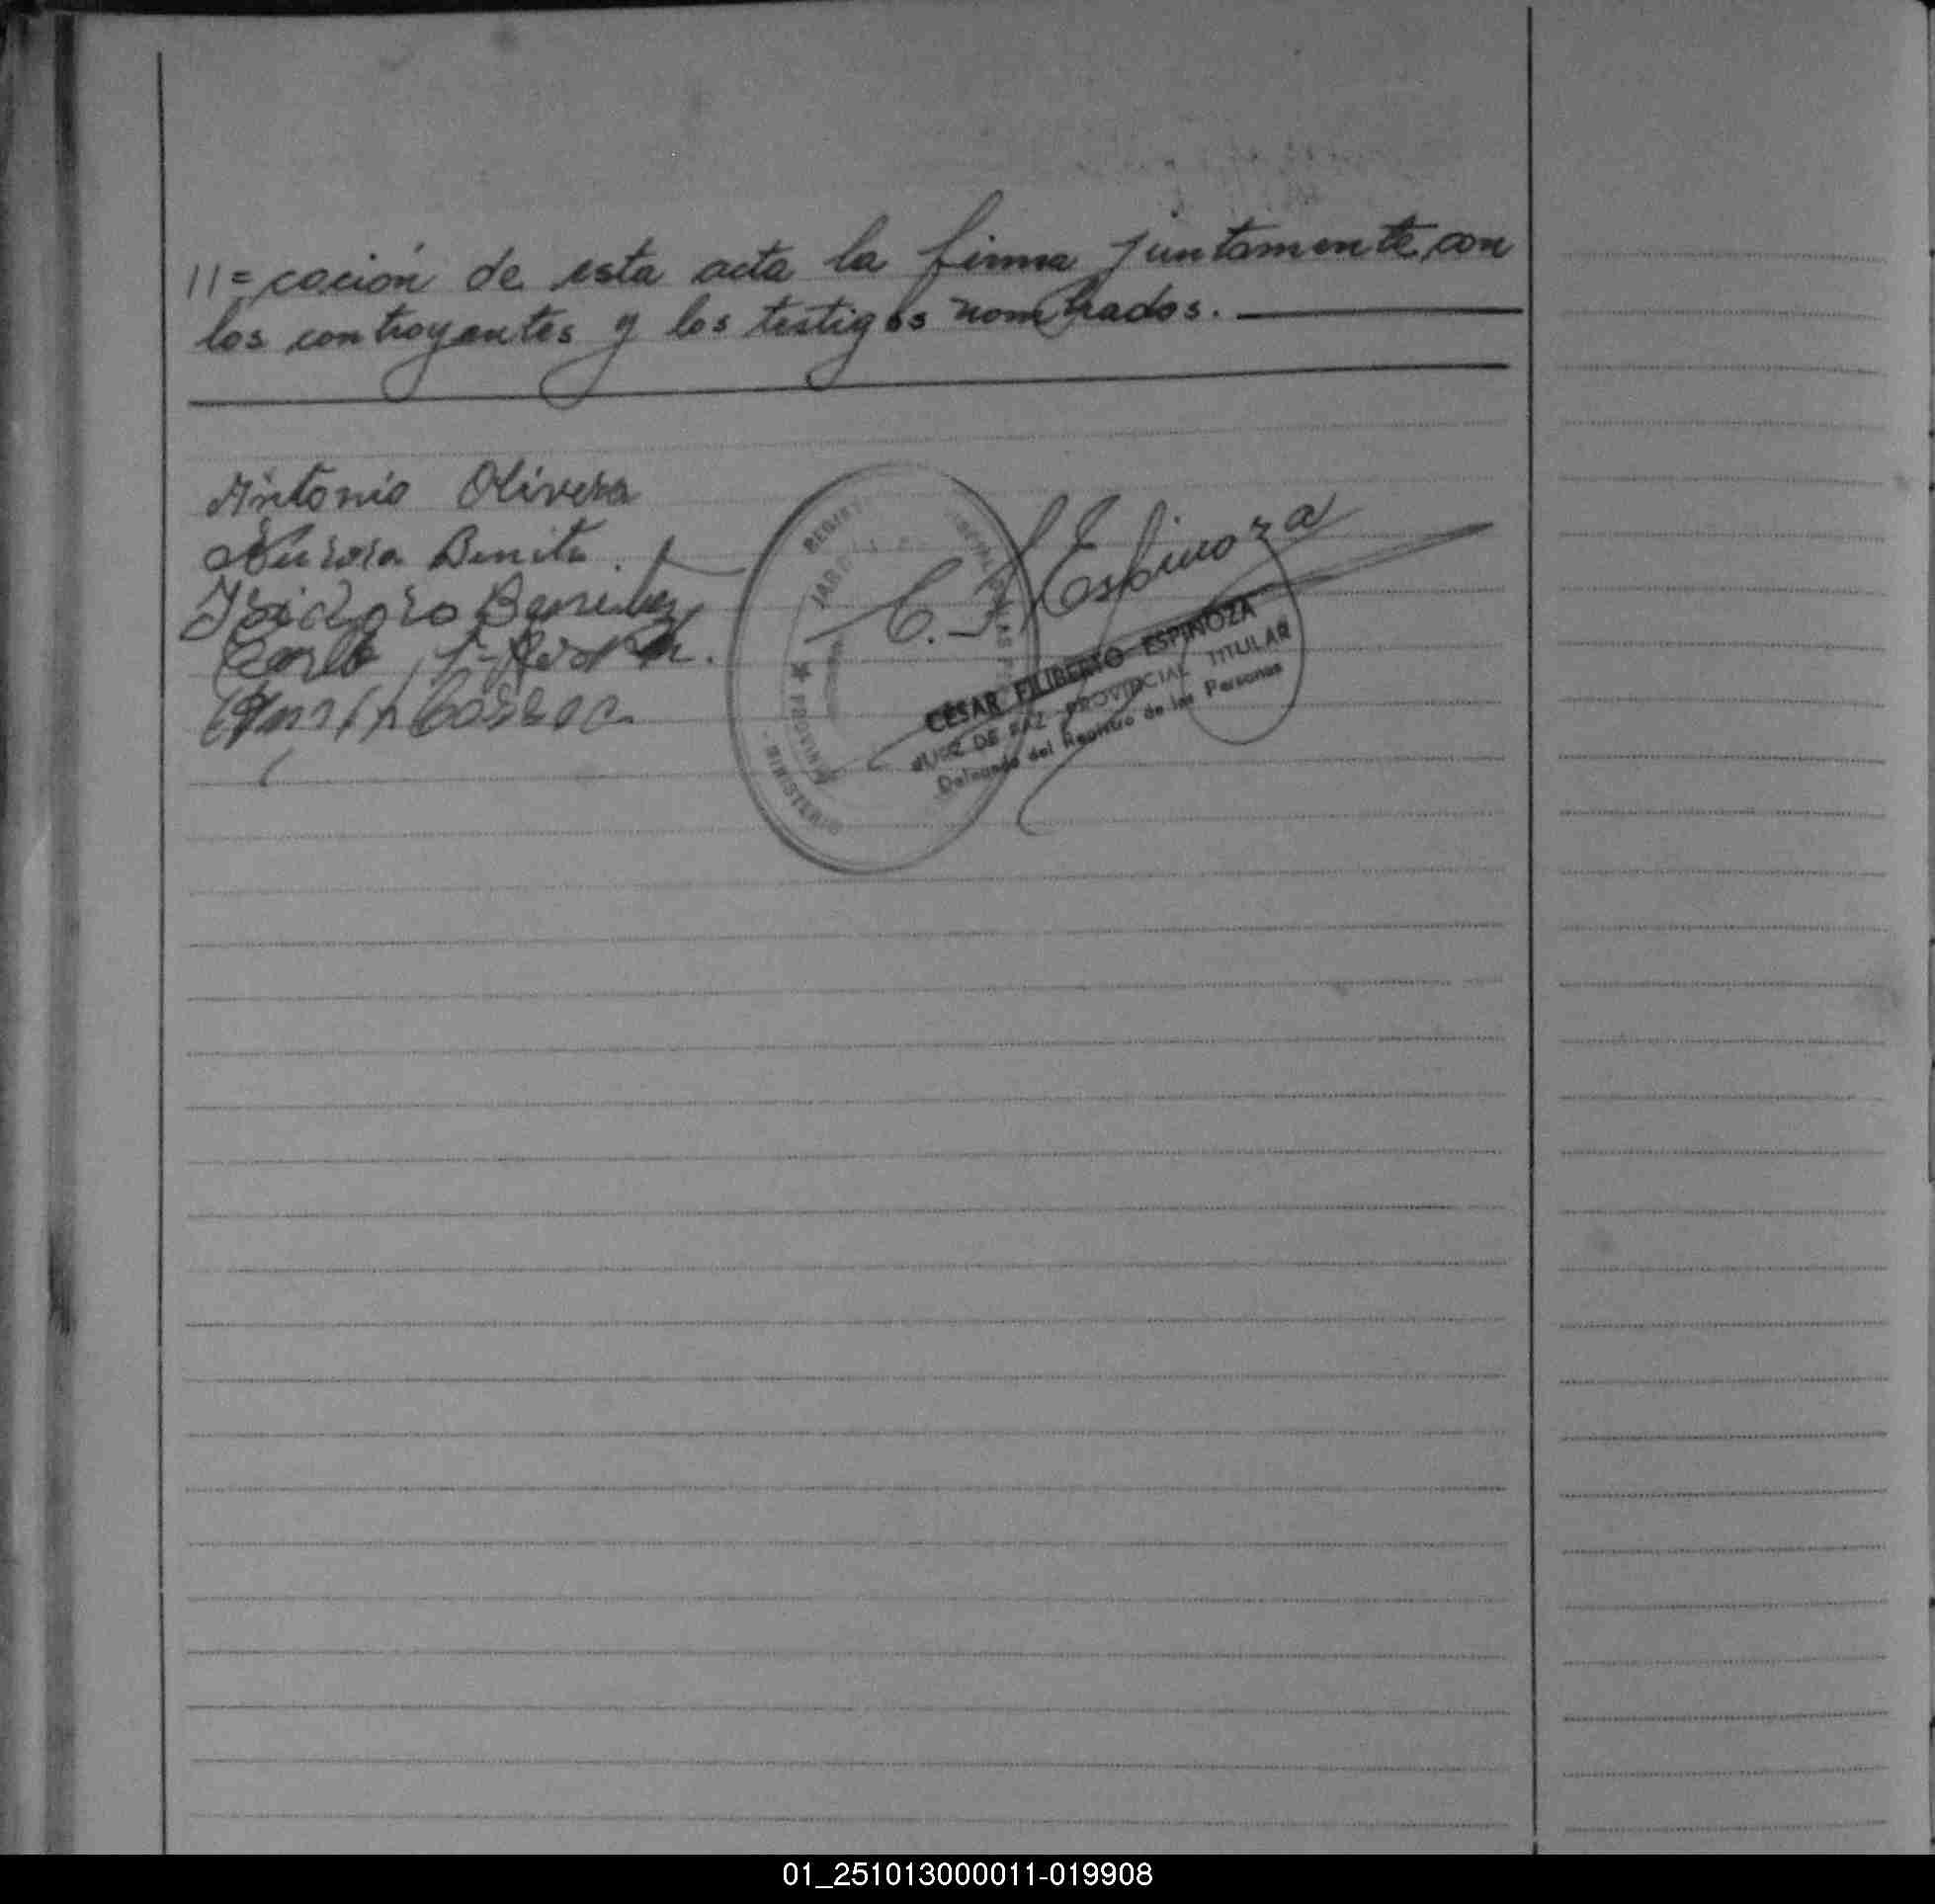 11=cación de esta acta la firma juntamente con
los contrayentes y los testigos nombrados.
Antonio Olivera
Aurora Benita
Isidoro Benitez
Carlo
C. F. Espinoza
CÉSAR FILIBERTO ESPINOZA
JUEZ DE PAZ PROVINCIAL TITULAR
Delegado del Registro de las Personas
01_251013000011-019908